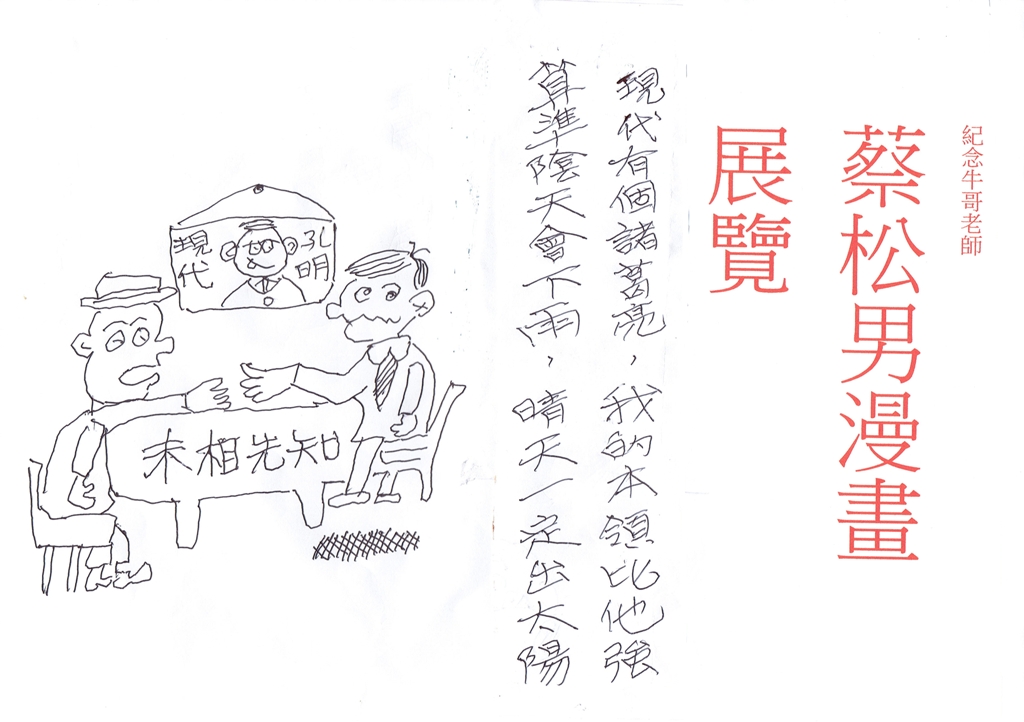 紀念牛哥老師
蔡松男漫畫
展覽
現代有個諸葛亮，我的本領比他強
算準陰天會下雨，晴天一定出太陽
現代
孔明
未相先知